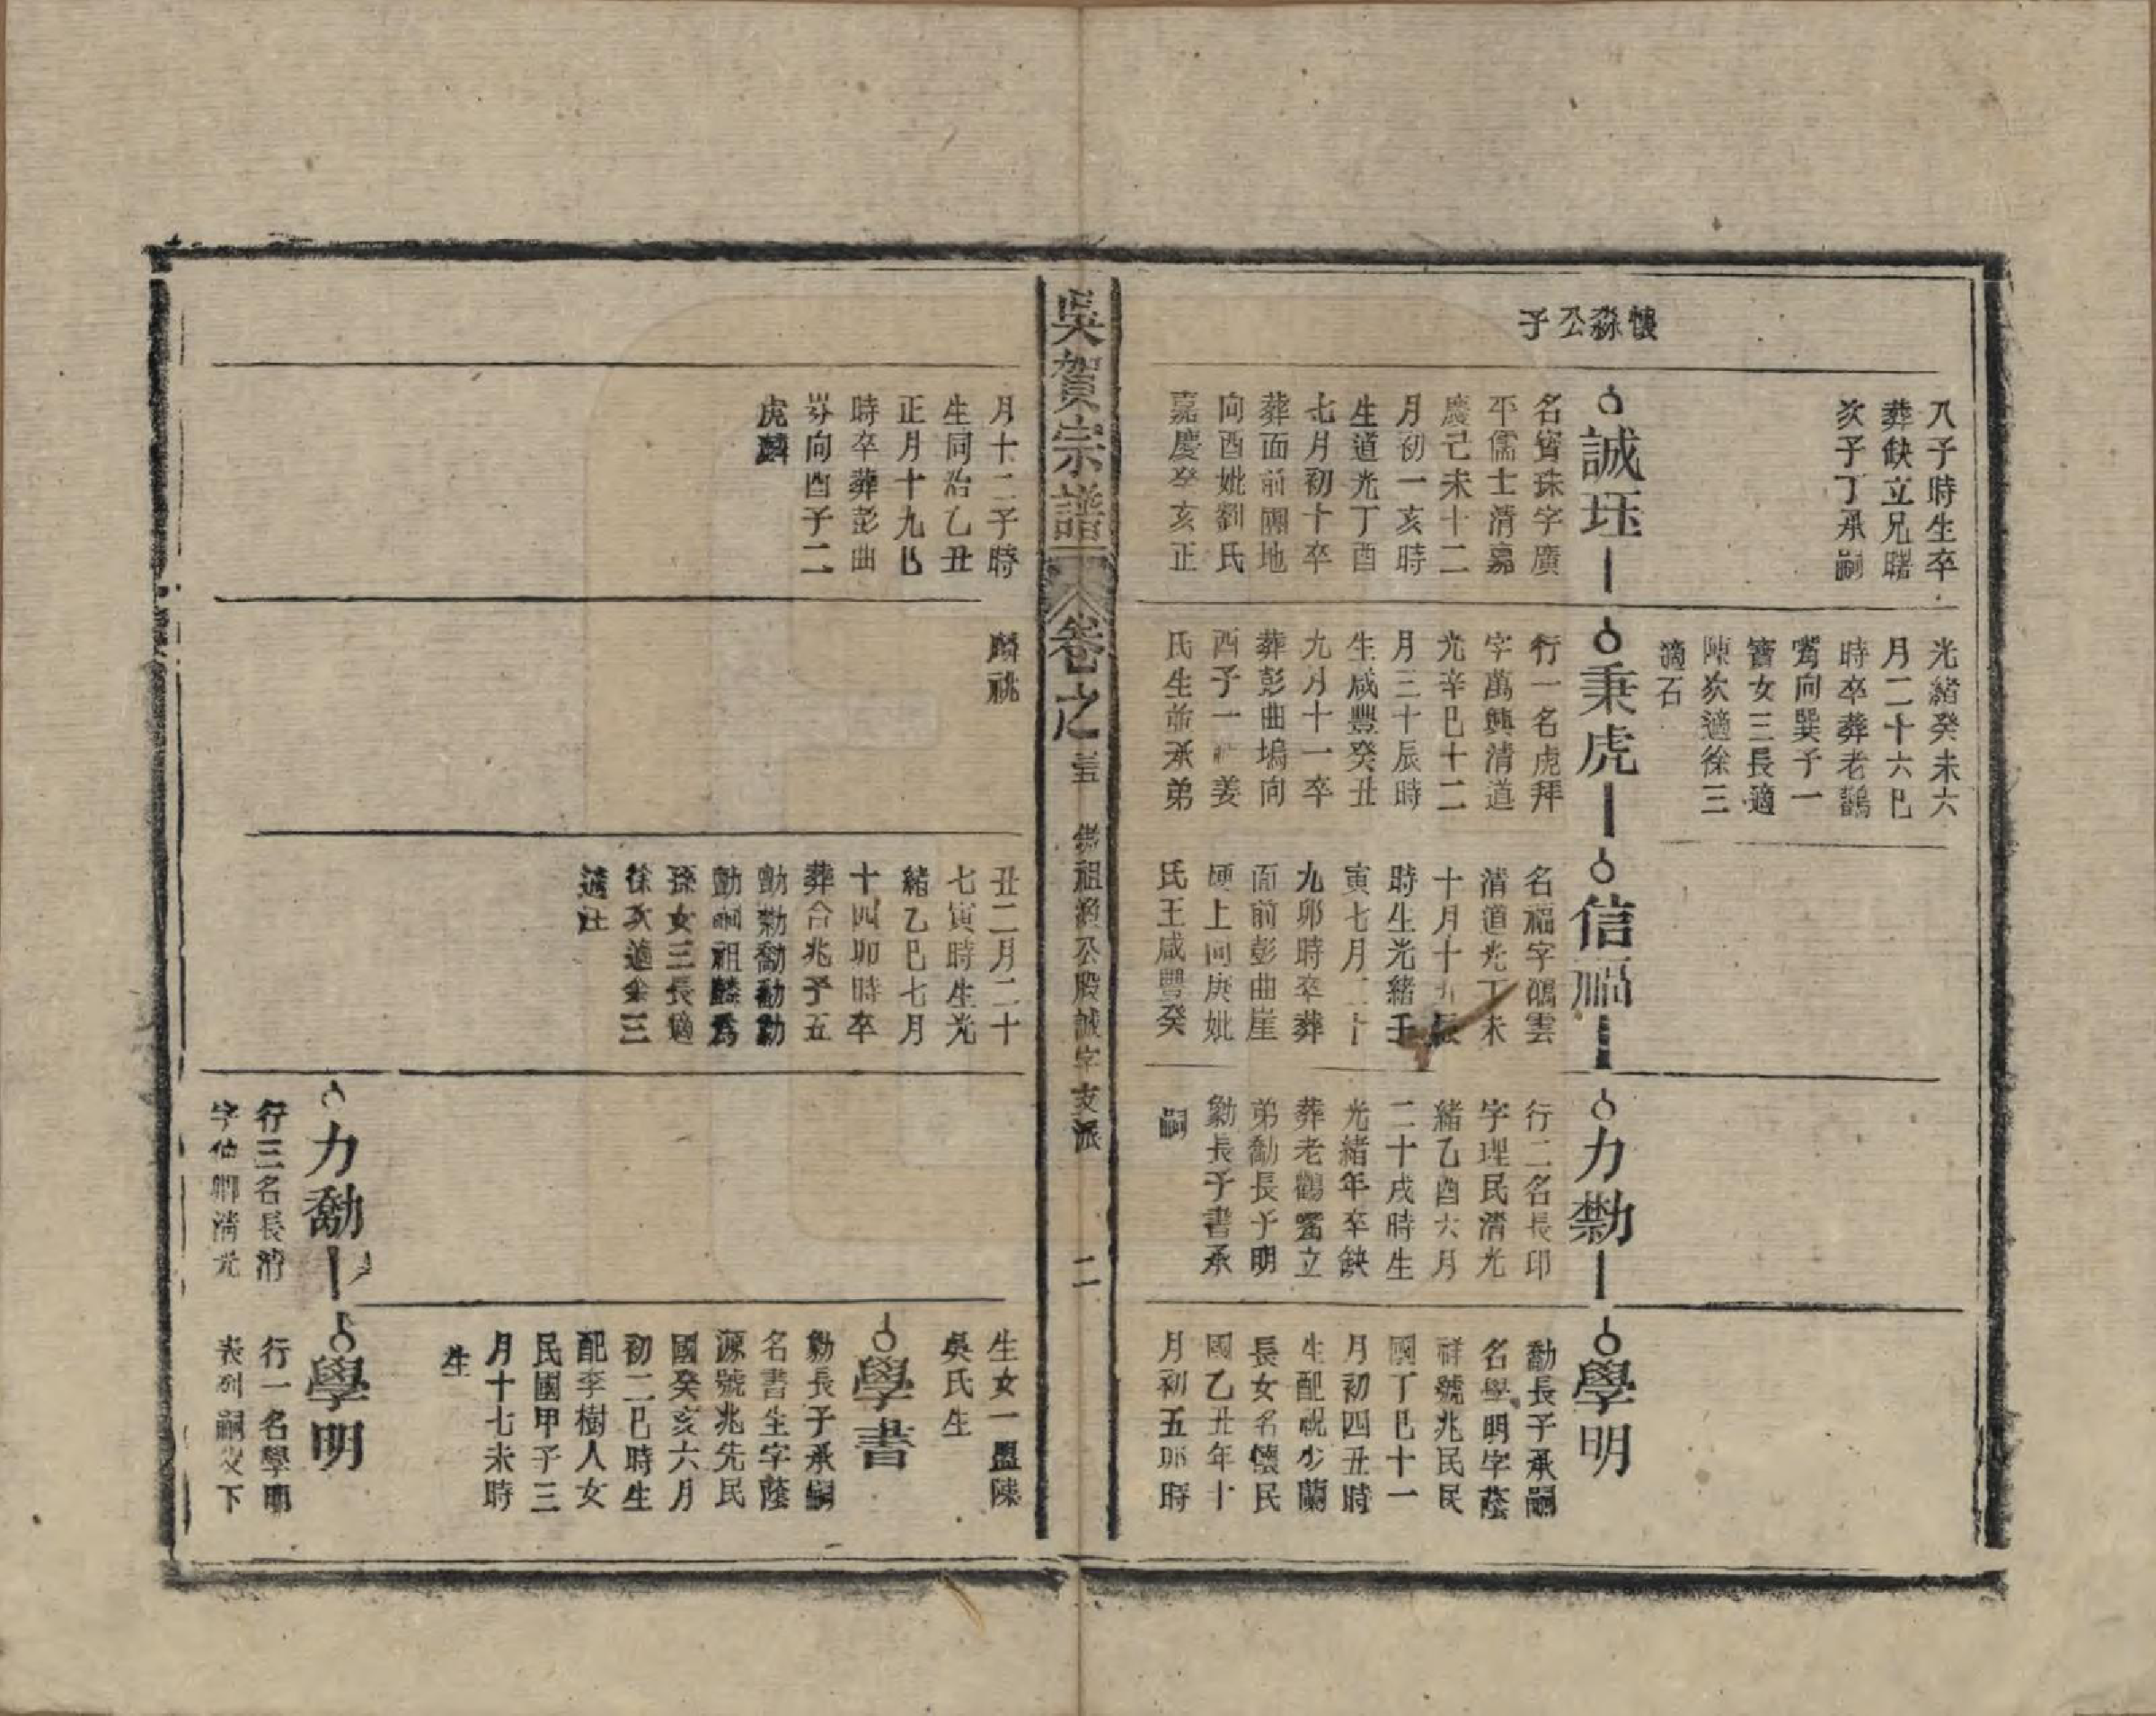 懷淼公子
八子時生卒
葬缺立兄曙
次子丁承嗣
誠玨
名寶珠字廣
平儒士清嘉
慶己未十二
月初一亥時
生道光丁酉
七月初十卒
葬面前園地
向酉妣劉氏
嘉慶癸亥正
光緒癸未六
月二十六巳
時卒葬老鸛
窩向巽子一
簹女三長適
陳次適徐三
適石
秉虎
行一名虎拜
字萬興清道
光辛巳十二
月三十辰時
生咸豐癸丑
九月十一卒
葬彭曲塢向
酉子一福姜
氏生前承弟
信福
名福字鴻雲
清道光丁未
十月十五辰
時生光緒壬
寅七月二十
九卯時卒葬
面前彭曲崖
硬上向庚妣
氏王咸豐癸
力勬
行二名長印
字理民清光
緒乙酉六月
二十戌時生
光緒年卒缺
葬老鸛窩立
弟勫長子明
勨長子書承
嗣
學明
勫長子承嗣
名學明字蔭
祥號兆民民
國丁巳十一
月初四丑時
生配祝少蘭
長女名懷民
國乙丑年十
月初五卯時
吳賀宗譜
卷之
三五
懋祖漁公股誠字支派
二
月十二子時
生同治乙丑
正月十九巳
時卒葬彭曲
塝向酉子二
虎麟
麟祧
丑二月二十
七寅時生光
緒乙巳七月
十四卯時卒
葬合兆子五
勳勬勫勸勨
勳嗣祖麟為
孫女三長適
徐次適余三
適汪
生女一盟陳
吳氏生
學書
勨長子承嗣
名書生字蔭
源號兆先民
國癸亥六月
初二巳時生
配李樹人女
民國甲子三
月十七未時
生
力勫
行三名長清
字仙卿清光
學明
行一名學明
表列嗣父下